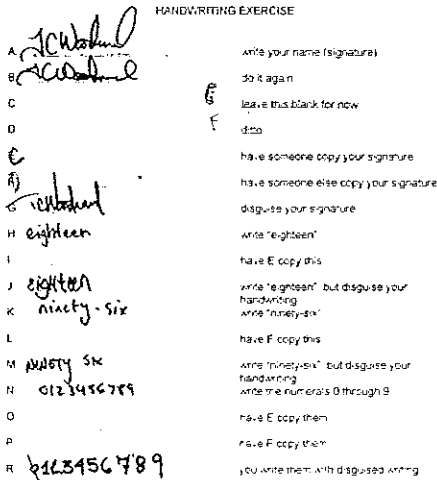 HANDWRITING EXERCISE
A JCWoodward write your name (signature)
B JCWoodward do it again
C E leave this blank for now
D F ditto
E have someone copy your signature
have someone else copy your signature
G disguise your signature
H eighteen write "eighteen"
I have E copy this
J eighteen write "eighteen" but disguise your
handwriting
K ninety-six write "ninety-six"
L have F copy this
M NINETY SIX write "ninety-six" but disguise your
handwriting
N 0123456789 write the numerals 0 through 9
O have E copy them
P have F copy them
R 0123456789 you write them with disguised writing